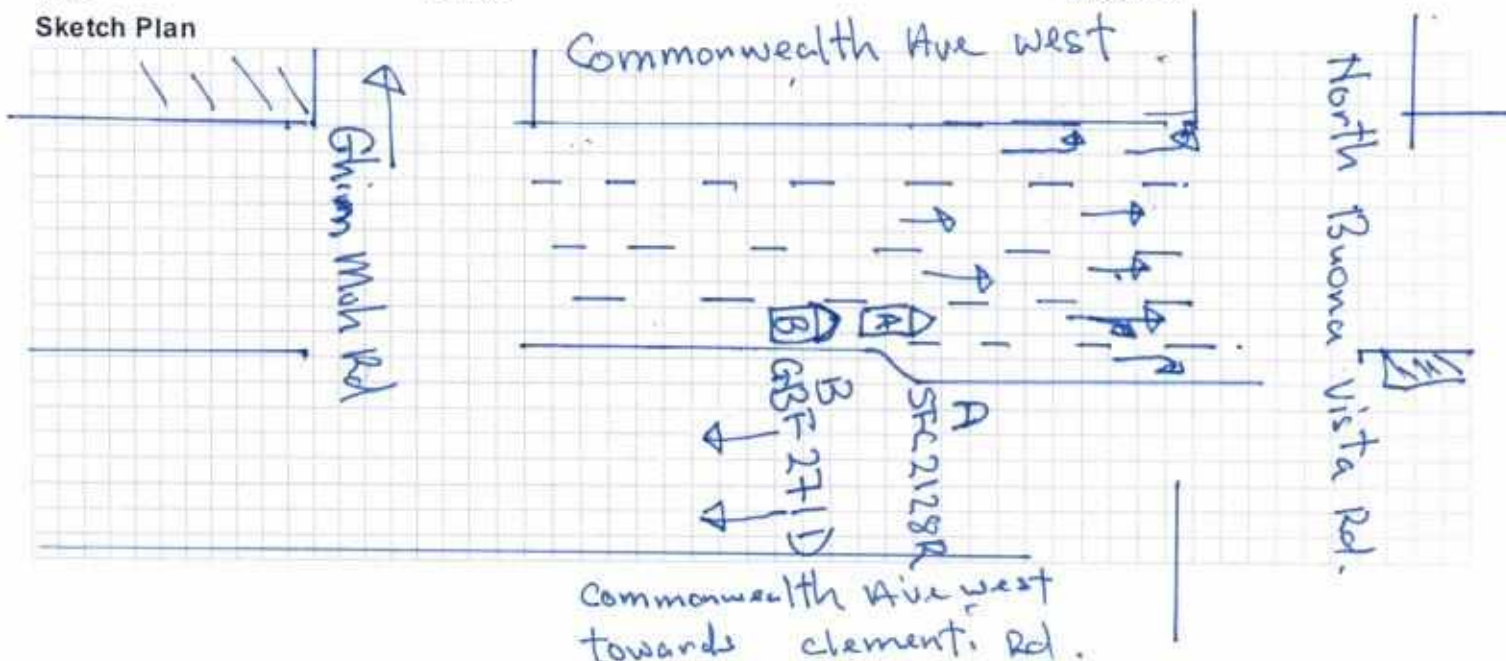 Sketch Plan
Commonwealth Ave west
North Buona Vista Rd.
Ghim Moh Rd
B
A
B
GBF 271D
A
SFC2128R
Commonwealth Ave west
towards clementi Rd.